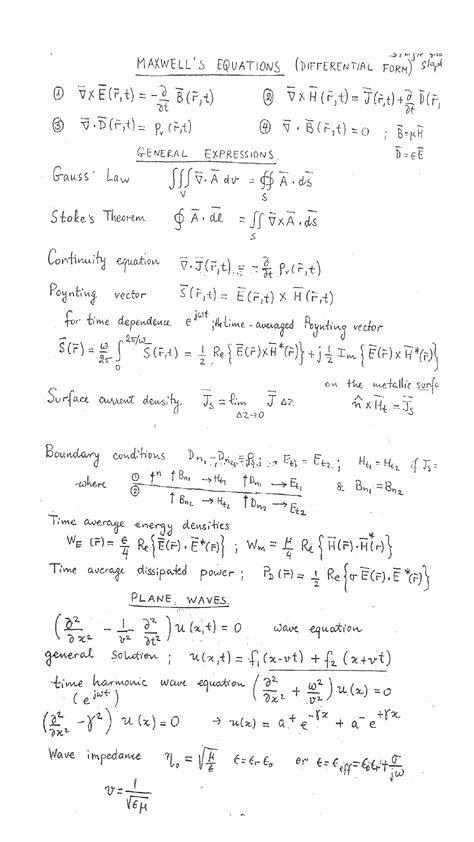 MAXWELL'S EQUATIONS (DIFFERENTIAL FORM)
① ∇̄×Ē(r̄,t) = -∂/∂t B̄(r̄,t) ② ∇̄×H̄(r̄,t) = J̄(r̄,t)+∂/∂t D̄(r̄,
③ ∇̄·D̄(r̄,t) = ρᵥ(r̄,t) ④ ∇̄·B̄(r̄,t) = 0 ; B̄=μH̄
D̄=εĒ
GENERAL EXPRESSIONS
Gauss' Law ∫∫∫_V ∇̄·Ā dv = ∯_S Ā·ds̄
Stoke's Theorem ∮ Ā·dl̄ = ∫∫_S ∇̄×Ā·ds̄
Continuity equation ∇̄·J̄(r̄,t) = -∂/∂t ρᵥ(r̄,t)
Poynting vector S̄(r̄,t) = Ē(r̄,t) × H̄(r̄,t)
for time dependence e^{jωt} ; the time-averaged Poynting vector
S̄(r̄) = ω/2π ∫_0^{2π/ω} S̄(r̄,t) = 1/2 Re{Ē(r̄)×H̄*(r̄)} + j 1/2 Im{Ē(r̄)×H̄*(r̄)}
on the metallic surfa
Surface current density J̄s = lim_{Δz→0} J̄ Δz n̂×H̄t = J̄s
Boundary conditions Dn₁-Dn₂=ρs ; Et₁ = Et₂ ; Ht₁ = Ht₂ if Js=
where ① ↑n ↑Bn₁ →Ht₁ ↑Dn₁ →Et₁ & Bn₁ = Bn₂
② ↑Bn₂ →Ht₂ ↑Dn₂ →Et₂
Time average energy densities
W_E (r̄) = ε/4 Re{Ē(r̄)·Ē*(r̄)} ; Wm = μ/4 Re{H̄(r̄)·H̄*(r)}
Time average dissipated power ; P_D(r̄) = 1/2 Re{σ Ē(r̄)·Ē*(r̄)}
PLANE WAVES
(∂²/∂x² - 1/v² ∂²/∂t²) u(x,t) = 0 wave equation
general solution ; u(x,t) = f₁(x-vt) + f₂(x+vt)
time harmonic wave equation (∂²/∂x² + ω²/v²) u(x) = 0
(e^{jωt})
(∂²/∂x² - γ²) u(x) = 0 → u(x) = a⁺e^{-γx} + a⁻e^{+γx}
Wave impedance η₀ = √(μ/ε) ε=εrε₀ or ε=ε_eff=ε₀εr+σ/jω
v = 1/√(εμ)